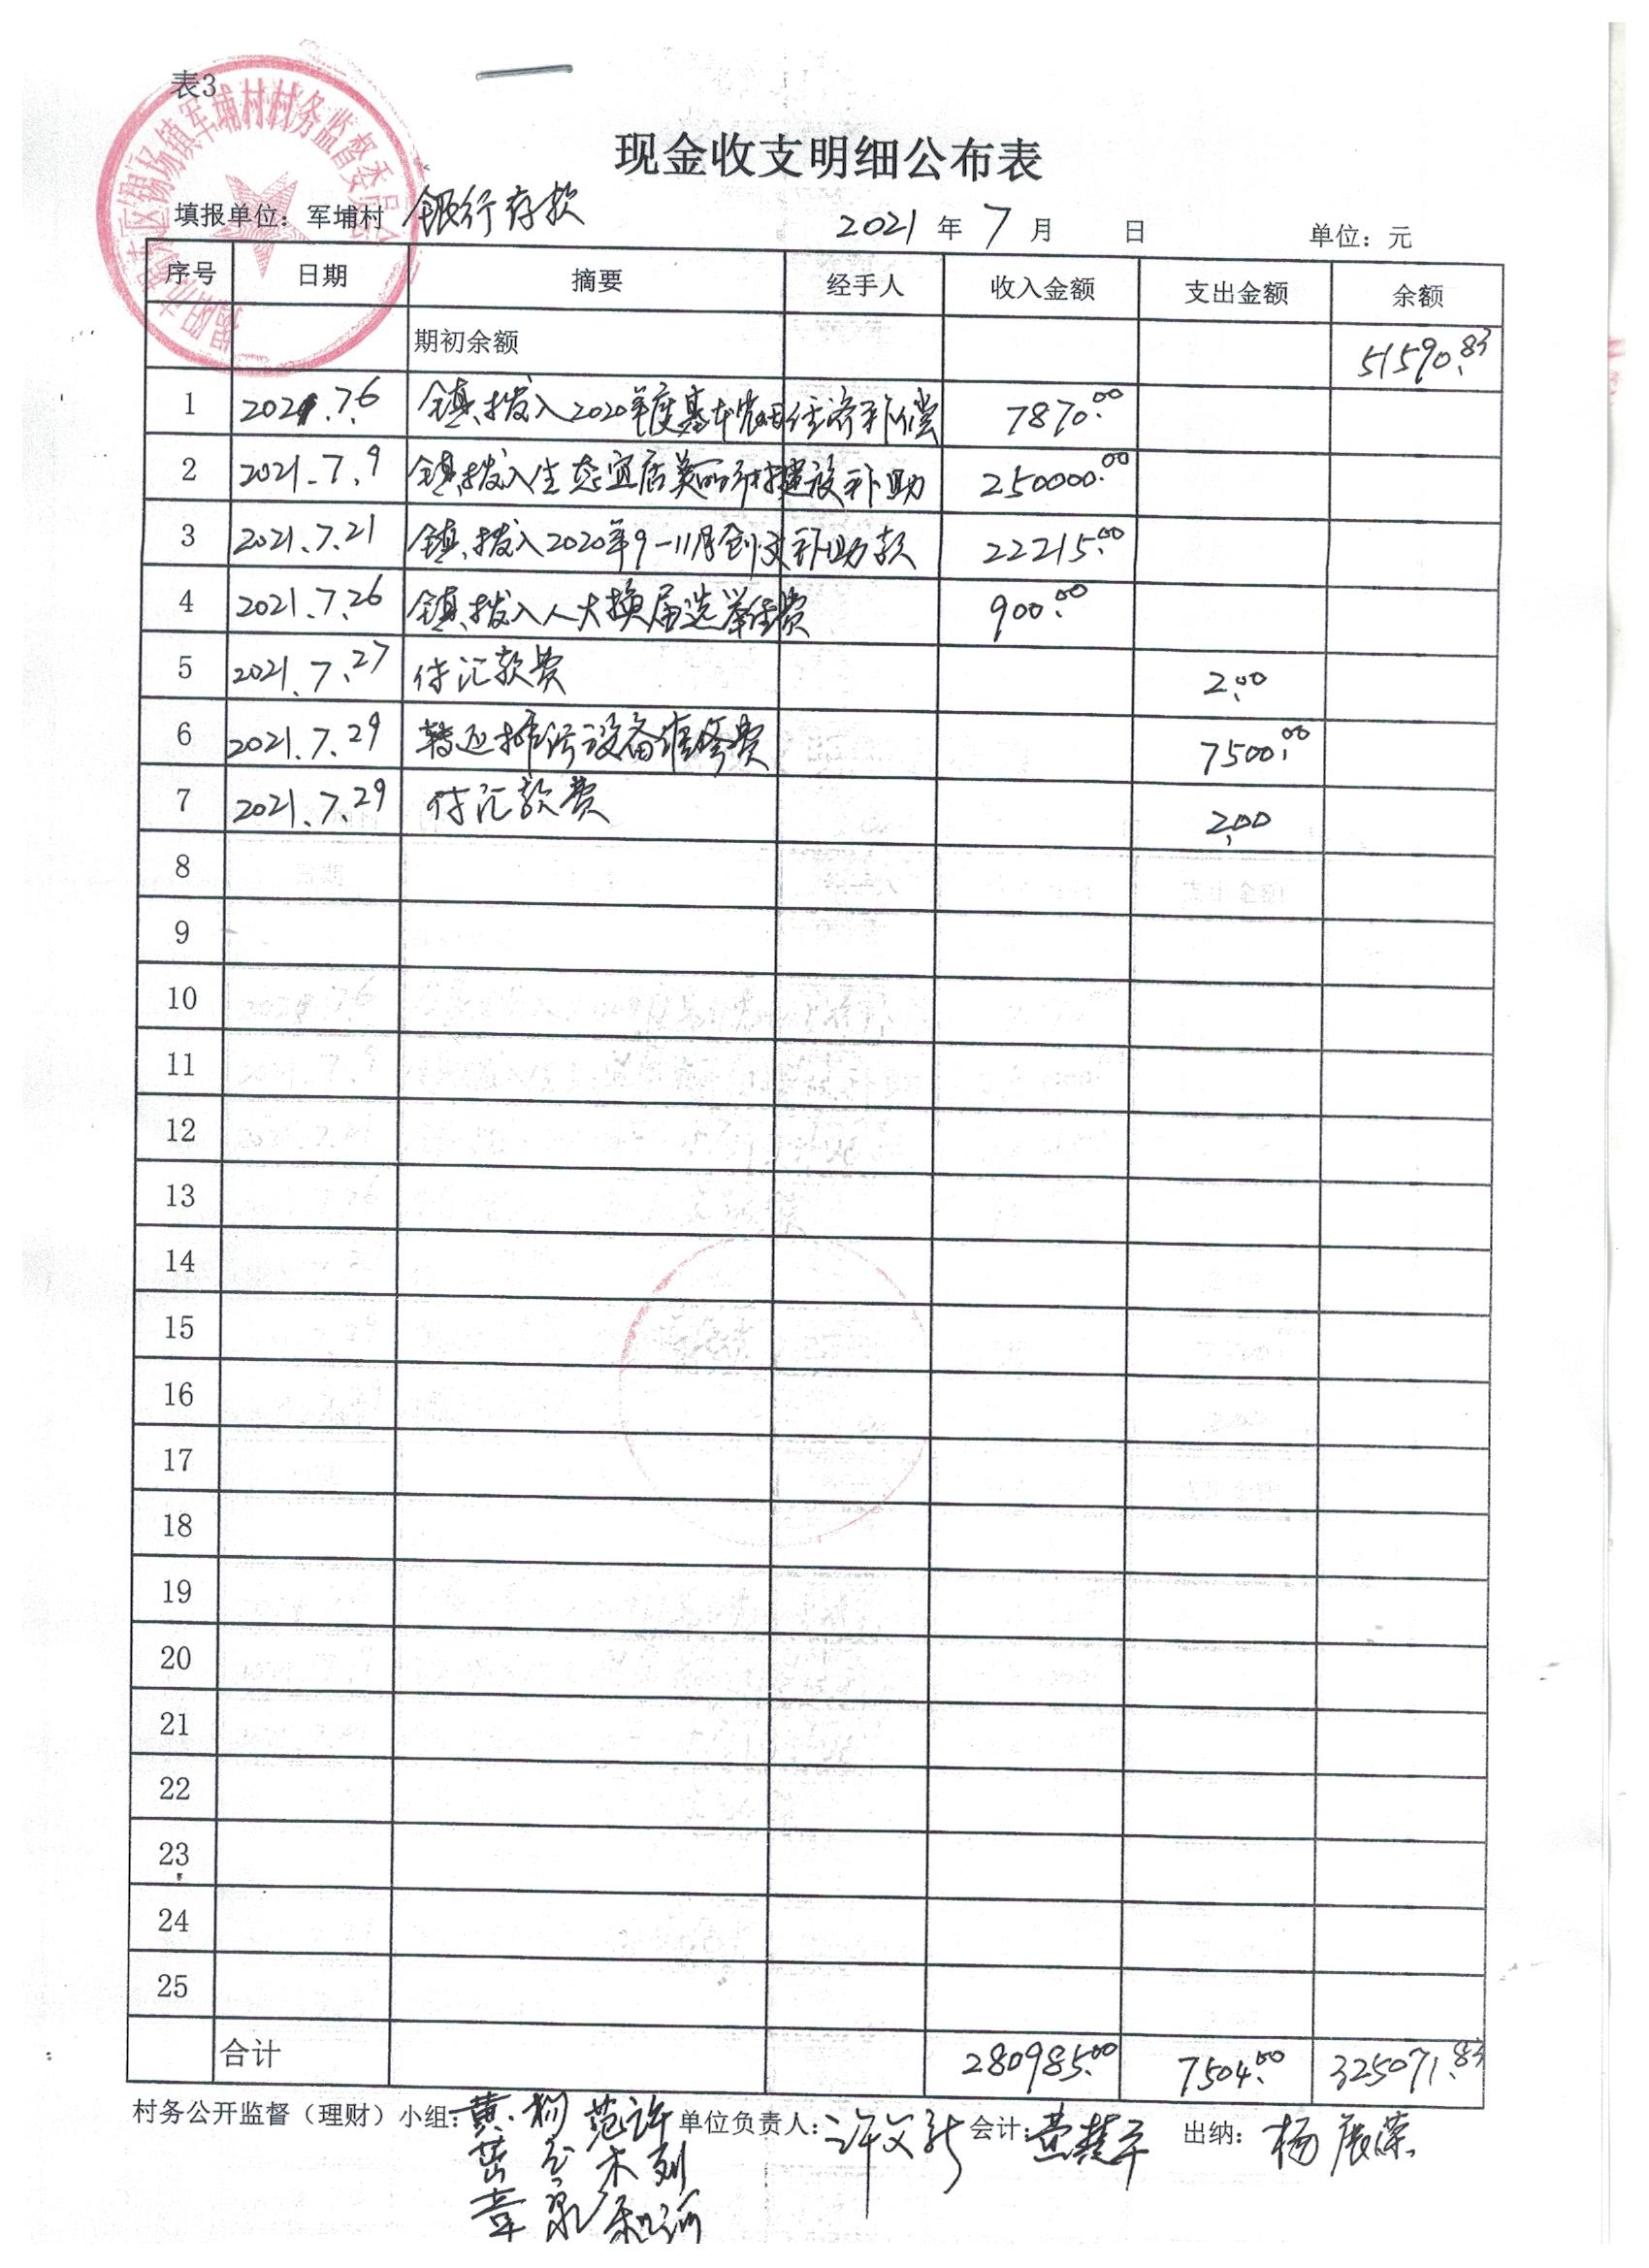 表3
揭阳市揭东区锡场镇军埔村村务监督委员会
现金收支明细公布表
填报单位：军埔村 银行存款 2021 年 7 月 日 单位：元
序号 日期 摘要 经手人 收入金额 支出金额 余额
期初余额 51590.83
1 2021.7.6 镇拨入2020年度基本农田经济补偿 7870.00
2 2021.7.9 镇拨入生态宜居美丽乡村建设补助 250000.00
3 2021.7.21 镇拨入2020年9-11月创文补助款 22215.00
4 2021.7.26 镇拨入人大换届选举经费 900.00
5 2021.7.27 付汇款费 2.00
6 2021.7.29 转迈排污设备维修费 7500.00
7 2021.7.29 付汇款费 2.00
8
9
10
11
12
13
14
15
16
17
18
19
20
21
22
23
24
25
合计 280985.00 7504.00 325071.83
村务公开监督（理财）小组： 黄 杨 范 许 单位负责人：许文 会计：黄 出纳：杨
木